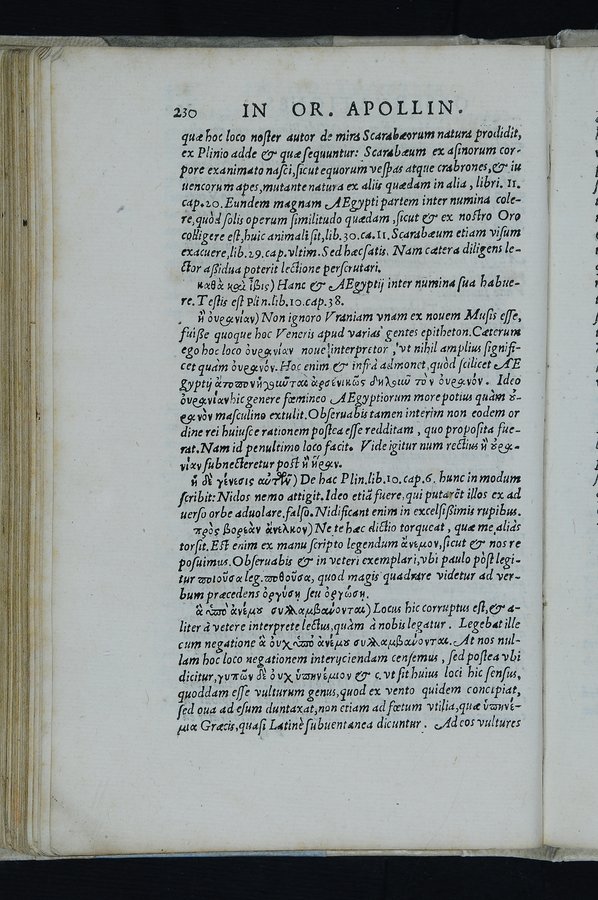 230 IN OR. APOLLIN.
quæ hoc loco noster autor de mira Scarabæorum natura prodidit,
ex Plinio adde & quæ sequuntur: Scarabæum ex asinorum cor-
pore exanimato nasci, sicut equorum vespas atque crabrones, & iu
uencorum apes, mutante natura ex aliis quædam in alia, libri. 11.
cap. 20. Eundem magnam AEgypti partem inter numina cole-
re, quòd solis operum similitudo quædam, sicut & ex nostro Oro
colligere est, huic animali sit, lib. 30. ca. 11. Scarabæum etiam visum
exacuere, lib. 29. cap. vltim. Sed hæc satis. Nam cætera diligens le-
ctor aßidua poterit lectione perscrutari.
καθὰ καὶ ἶβις) Hanc & AEgyptij inter numina sua habue-
re. Testis est Plin. lib. 10. cap. 38.
ἢ οὐρανίαν) Non ignoro Vraniam vnam ex nouem Musis esse,
fuisse quoque hoc Veneris apud varias gentes epitheton. Cæterum
ego hoc loco οὐρανίαν nouè interpretor, vt nihil amplius signifi-
cet quàm οὐρανόν. Hoc enim & infrà admonet, quòd scilicet AE
gyptij ἄτοπον ἡγοῦνται ἀρσενικῶς δηλοῦν τὸν οὐρανόν. Ideo
οὐρανίαν hic genere fœmineo AEgyptiorum more potius quàm ȣ-
ρανὸν masculino extulit. Obseruabis tamen interim non eodem or
dine rei huiusce rationem postea esse redditam, quo proposita fue-
rat. Nam id penultimo loco facit. Vide igitur num rectius ἢ ȣρα-
νίαν subnecteretur post ἢ ἥραν.
ἡ δὲ γένεσις αὐτῶν) De hac Plin. lib. 10. cap. 6. hunc in modum
scribit: Nidos nemo attigit. Ideo etiã fuere, qui putarẽt illos ex ad
uerso orbe aduolare, falso. Nidificant enim in excelsißimis rupibus.
πρὸς βορεὰν ἄνελκον) Ne te hæc dictio torqueat, quæ me aliàs
torsit. Est enim ex manu scripto legendum ἄνεμον, sicut & nos re
posuimus. Obseruabis & in veteri exemplari, vbi paulo pòst legi-
tur ποιοῦσα leg. ποθοῦσα, quod magis quadrare videtur ad ver-
bum præcedens ὀργήσῃ seu ὀργώσῃ.
ἃ ὑπὸ ἀνέμȣ συλλαμβάνονται) Locus hic corruptus est, & a-
liter à vetere interprete lectus, quàm à nobis legatur. Legebat ille
cum negatione ἃ οὐχ ὑπὸ ἀνέμȣ συλλαμβάνονται. At nos nul-
lam hoc loco negationem interijciendam censemus, sed postea vbi
dicitur, γυπῶν δὲ οὐχ ὑπηνέμιον & c. vt sit huius loci hic sensus,
quoddam esse vulturum genus, quod ex vento quidem concipiat,
sed oua ad esum duntaxat, non etiam ad fœtum vtilia, quæ ὑπηνέ-
μια Græcis, quasi Latinè subuentanea dicuntur. Ad eos vultures